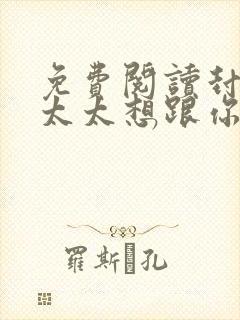 免費閱讀封
太太想跟你
羅斯 孔